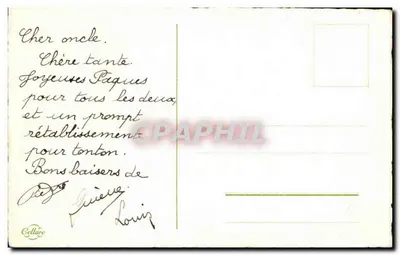 Cher oncle.
Chère tante
Joyeuses Pâques
pour tous les deux,
et un prompt
rétablissement
pour tonton.
Bons baisers de
Louis
CPAPHIL
Cellaro